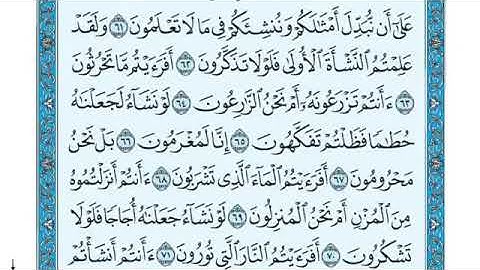 عَلَىٰٓ أَن نُّبَدِّلَ أَمۡثَٰلَكُمۡ وَنُنشِئَكُمۡ فِي مَا لَا تَعۡلَمُونَ ٦١ وَلَقَدۡ
عَلِمۡتُمُ ٱلنَّشۡأَةَ ٱلۡأُولَىٰ فَلَوۡلَا تَذَكَّرُونَ ٦٢ أَفَرَءَيۡتُم مَّا تَحۡرُثُونَ
٦٣ ءَأَنتُمۡ تَزۡرَعُونَهُۥٓ أَمۡ نَحۡنُ ٱلزَّٰرِعُونَ ٦٤ لَوۡ نَشَآءُ لَجَعَلۡنَٰهُ
حُطَٰمٗا فَظَلۡتُمۡ تَفَكَّهُونَ ٦٥ إِنَّا لَمُغۡرَمُونَ ٦٦ بَلۡ نَحۡنُ
مَحۡرُومُونَ ٦٧ أَفَرَءَيۡتُمُ ٱلۡمَآءَ ٱلَّذِي تَشۡرَبُونَ ٦٨ ءَأَنتُمۡ أَنزَلۡتُمُوهُ
مِنَ ٱلۡمُزۡنِ أَمۡ نَحۡنُ ٱلۡمُنزِلُونَ ٦٩ لَوۡ نَشَآءُ جَعَلۡنَٰهُ أُجَاجٗا فَلَوۡلَا
تَشۡكُرُونَ ٧٠ أَفَرَءَيۡتُمُ ٱلنَّارَ ٱلَّتِي تُورُونَ ٧١ ءَأَنتُمۡ أَنشَأۡتُمۡ